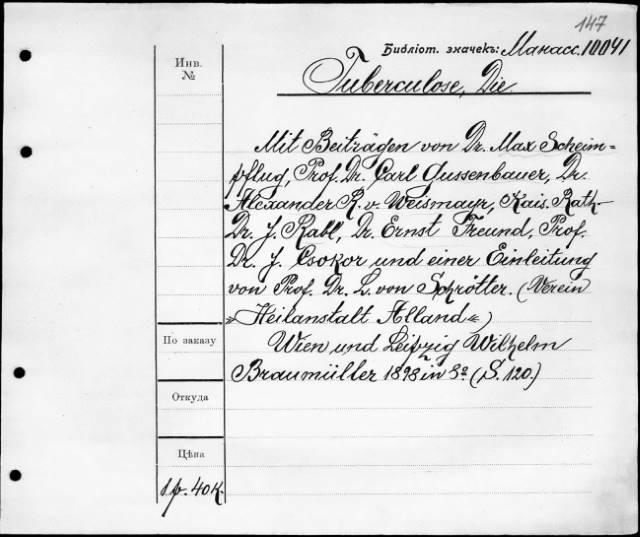 147
Библіот. значекъ: Манасс. 10041
Инв.
№
Tuberculose, Die
Mit Beiträgen von Dr. Max Scheim-
pflug, Prof. Dr. Carl Gussenbauer, Dr.
Alexander R. v. Weismayr, Kais. Rath
Dr. J. Rabl, Dr. Ernst Freund, Prof.
Dr. J. Csokor und einer Einleitung
von Prof. Dr. L. von Schrötter. (Verein
»Heilanstalt Alland«)
По заказу
Wien und Leipzig Wilhelm
Braumüller 1898 in 8º (S. 120.)
Откуда
Цѣна
1 р. 40 к.